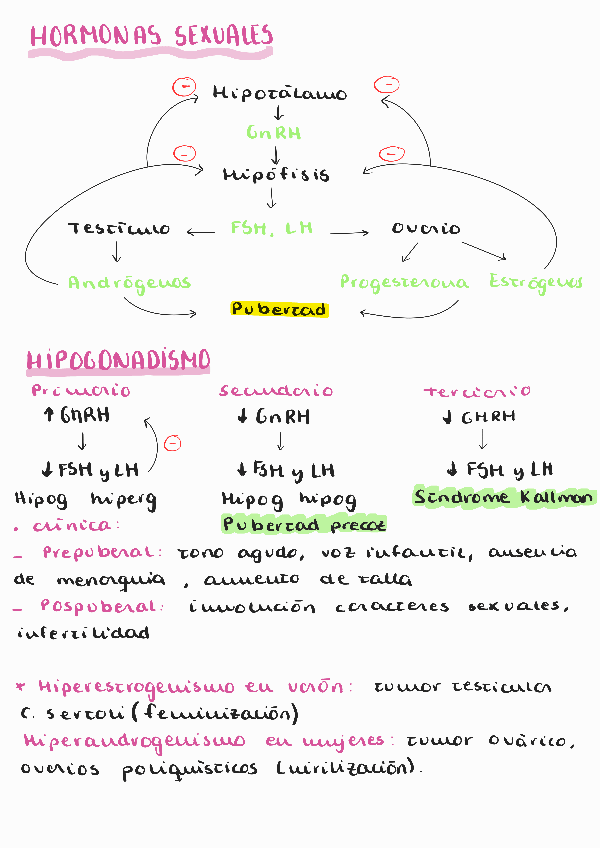 HORMONAS SEXUALES
- Hipotálamo -
GnRH
- Hipófisis -
Testículo FSH, LH Ovario
Andrógenos Progesterona Estrógenos
Pubertad
HIPOGONADISMO
Primario Secundario Terciario
↑ GnRH ↓ GnRH ↓ GHRH
-
↓ FSH y LH ↓ FSH y LH ↓ FSH y LH
Hipog hiperg Hipog hipog Síndrome Kallman
• clínica: Pubertad precoz
- Prepuberal: tono agudo, voz infantil, ausencia
de menarquia, aumento de talla
- Pospuberal: involución caracteres sexuales,
infertilidad
* Hiperestrogenismo en varón: tumor testicular
C. sertoli (feminización)
Hiperandrogenismo en mujeres: tumor ovárico,
ovarios poliquísticos (virilización).